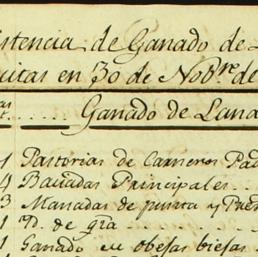 istencia de Ganado de L
uitas en 30 de Nobre. de
as
Ganado de Lana
1 Pastorias de Carneros Pad
4 Baciadas Principales
3 Manadas de punta y Pue
1 Yd. de gra
1 Ganado en obejas biejas